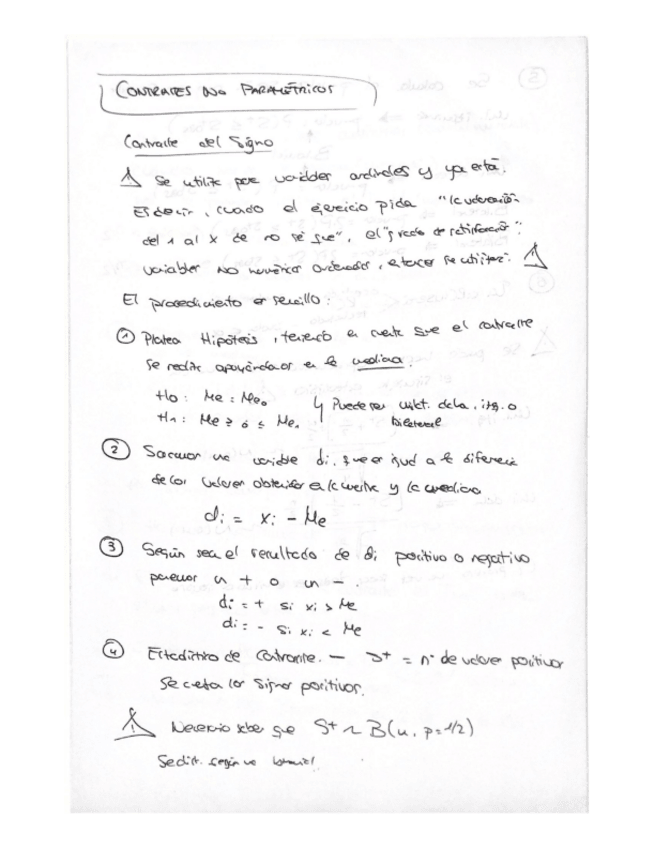 CONTRASTES NO PARAMÉTRICOS
Contraste del Signo
⚠ Se utiliza para variables ordinales y ya está.
Es decir, cuando el ejercicio pida "la valoración
del 1 al X de no sé que", el "grado de satisfacción".
variables NO numéricas ordenadas, entonces se utiliza. ⚠
El procedimiento es sencillo:
① Plantea Hipótesis, teniendo en cuenta que el contraste
se realiza apoyándonos en la mediana.
H0: Me = Me0 ↳ Puede ser unilat. dcha, izq. o
H1: Me ≥ ó ≤ Me. bilateral
② Sacamos una variable di, que es igual a la diferencia
de los valores obtenidos en la muestra y la mediana
di = xi - Me
③ Según sea el resultado de di positivo o negativo
ponemos un + o un -.
di = + si xi > Me
di = - si xi < Me
④ Estadístico de Contraste. - S+ = nº de valores positivos
Se cuenta los signos positivos.
⚠ Necesario saber que S+ ~ B(n, p=1/2)
Se dist. según una binomial.